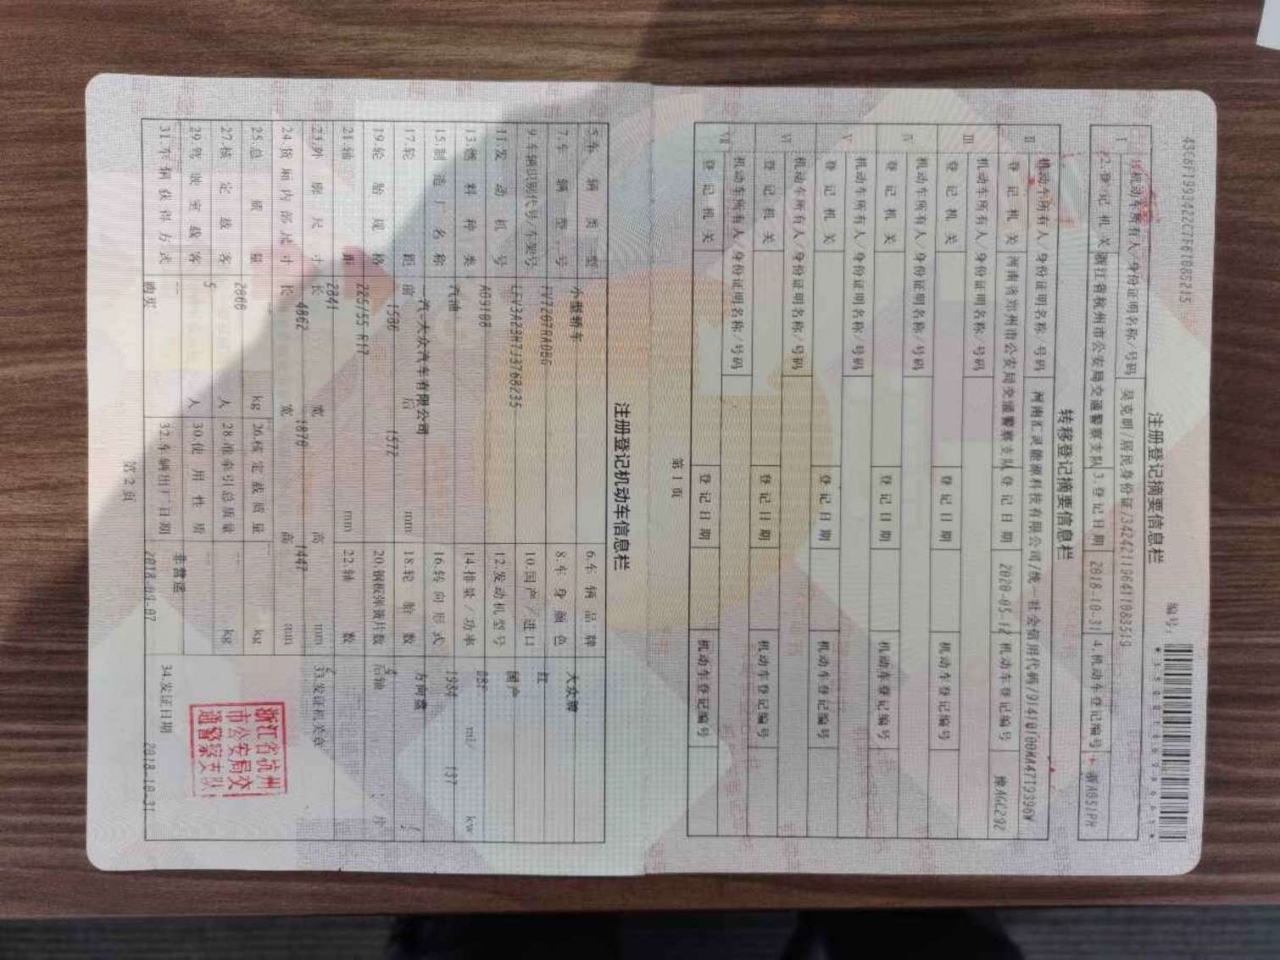 43C6F1993422C7F6T088215
编号:
注册登记摘要信息栏
I 1.机动车所有人/身份证明名称/号码 吴克明/居民身份证/342421196411083519
2.登记机关 浙江省杭州市公安局交通警察支队 3.登记日期 2018-10-31 4.机动车登记编号 浙A051PH
转移登记摘要信息栏
II 机动车所有人/身份证明名称/号码 河南汇灵能源科技有限公司/统一社会信用代码/91410100MA47T9396W
登记机关 河南省郑州市公安局交通警察支队 登记日期 2020-05-12 机动车登记编号 豫AGC292
III 机动车所有人/身份证明名称/号码
登记机关 登记日期 机动车登记编号
IV 机动车所有人/身份证明名称/号码
登记机关 登记日期 机动车登记编号
V 机动车所有人/身份证明名称/号码
登记机关 登记日期 机动车登记编号
VI 机动车所有人/身份证明名称/号码
登记机关 登记日期 机动车登记编号
VII 机动车所有人/身份证明名称/号码
登记机关 登记日期 机动车登记编号
第1页
注册登记机动车信息栏
5.车辆类型 小型轿车 6.车辆品牌 大众牌
7.车辆型号 FV7207RADBG 8.车身颜色 红
9.车辆识别代号/车架号 LFV3A23H7J3768235 10.国产/进口 国产
11.发动机号 A09108 12.发动机型号 DBT
13.燃料种类 汽油 14.排量/功率 1984 ml/ 137 kw
15.制造厂名称 一汽-大众汽车有限公司 16.转向形式 方向盘
17.轮距 前 1586 后 1572 mm 18.轮胎数
19.轮胎规格 225/55 R17 20.钢板弹簧片数 后轴 片
21.轴距 2841 mm 22.轴数
23.外廓尺寸 长 4862 宽 1870 高 1447 mm 33.发证机关章
24.货厢内部尺寸 长 宽 高 mm
25.总质量 2060 kg 26.核定载质量 kg
27.核定载客 5 人 28.准牵引总质量 kg
29.驾驶室载客 人 30.使用性质 非营运
31.车辆获得方式 购买 32.车辆出厂日期 2018-09-07 34.发证日期 2018-10-31
浙江省杭州
市公安局交
通警察支队
第2页